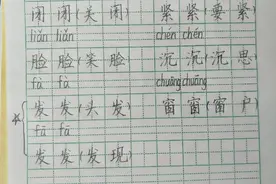 闭 闭(关 闭) 紧 紧(要 紧)
liǎn liǎn chén chén
脸 脸(笑 脸) 沉 沉(沉 思)
fà fà chuāng chuāng
发 发(头 发) 窗 窗(窗 户)
fā fā
发 发(发 现)